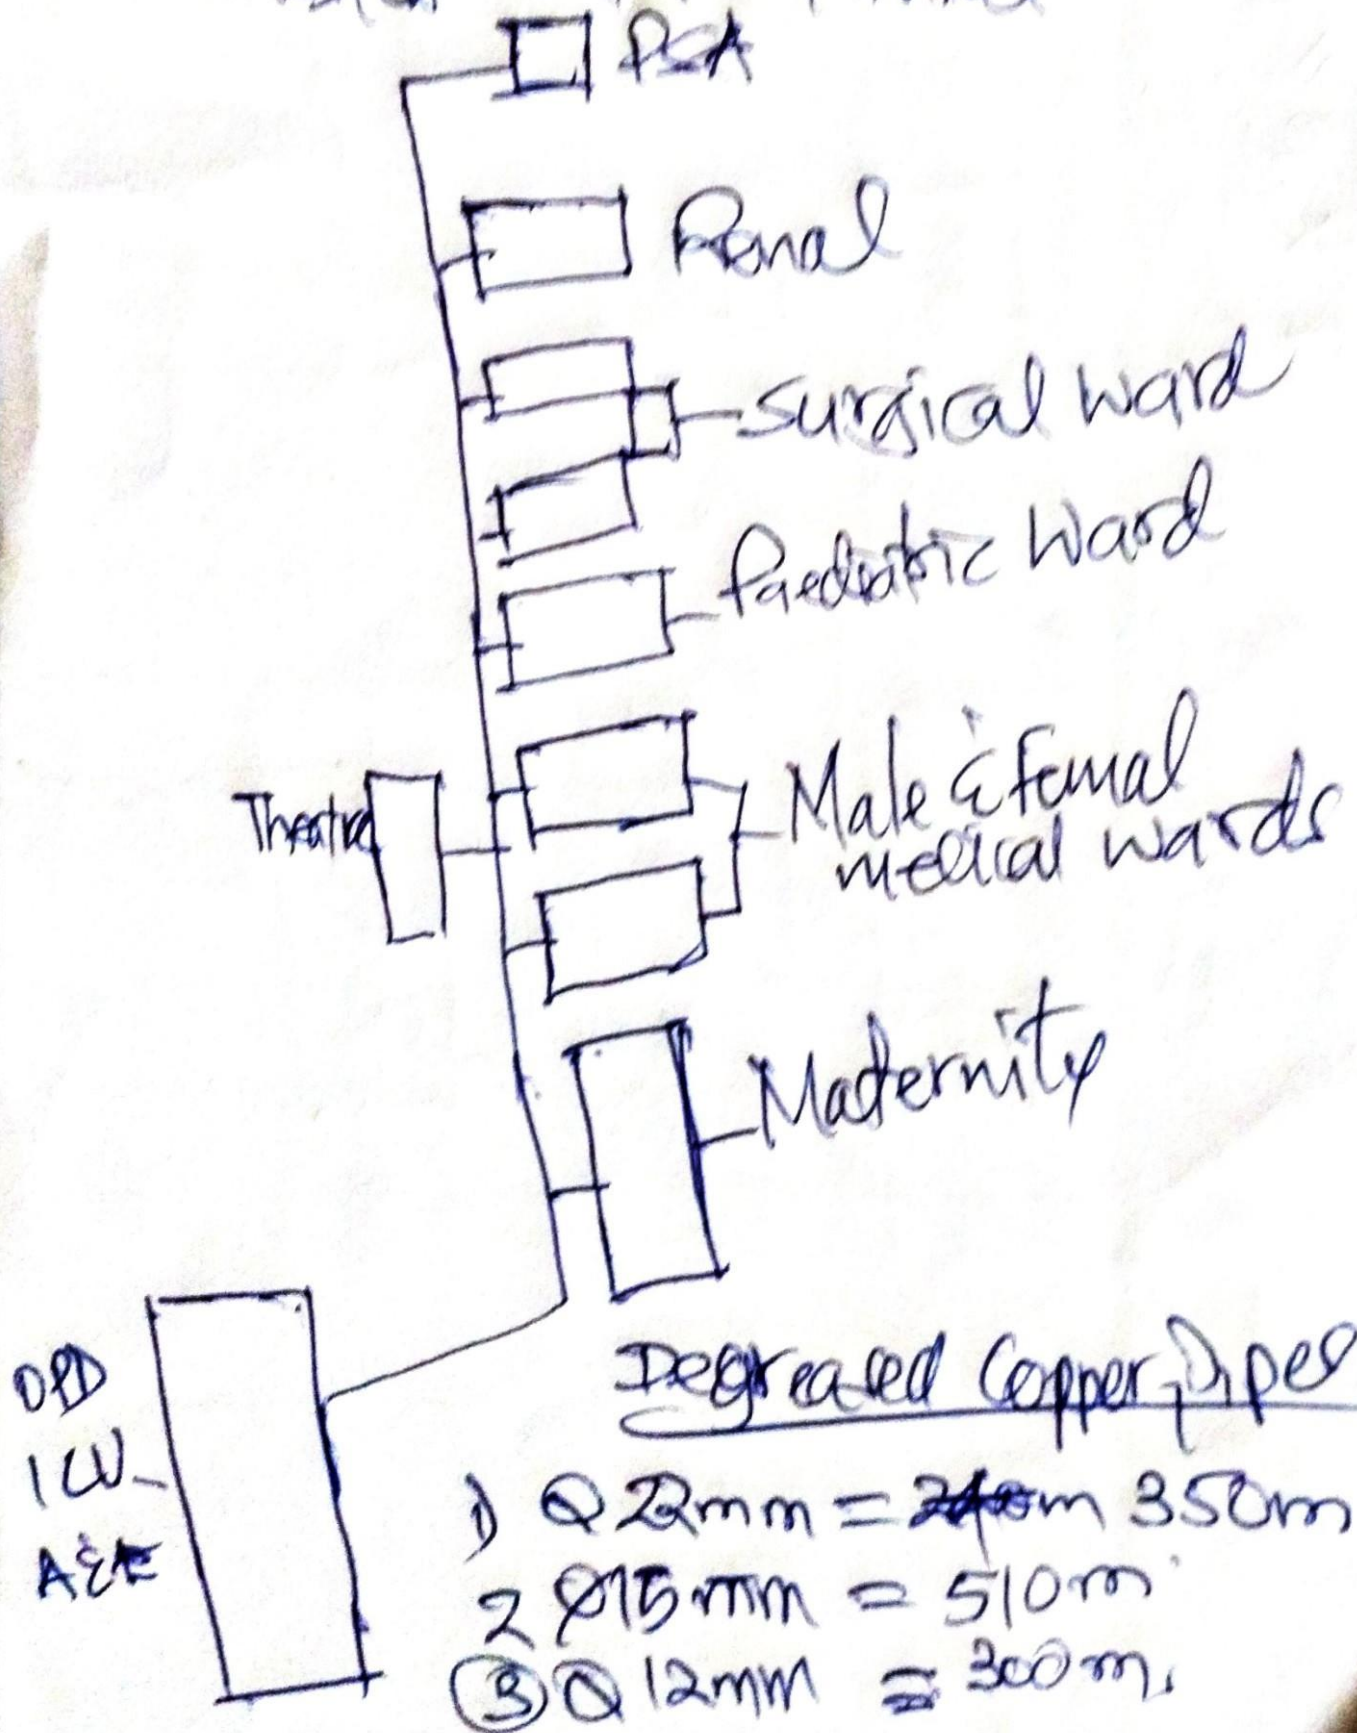 PSA
Renal
Surgical Ward
Paediatric Ward
Theatre
Male & Femal
medical wards
Maternity
OPD
ICU
A&E
Degreased Copper Pipes
1) Ø 22mm = 350m
2 Ø15mm = 510m
3 Ø 12mm = 300m.